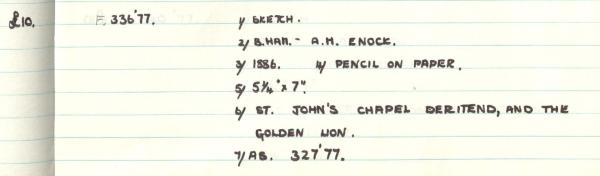 £10. F. 336'77. 1/ SKETCH.
2/ B.HAM. - A.H. ENOCK.
3/ 1886. 4/ PENCIL ON PAPER.
5/ 5¼" x 7".
6/ ST. JOHN'S CHAPEL DERITEND, AND THE
GOLDEN LION.
7/ AS. 327'77.